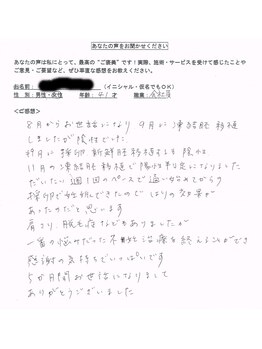 あなたの声をお聞かせください
あなたの声は私にとって、最高の"ご褒美"です！実際、施術・サービスを受けて感じたことや
ご意見・ご要望など、ぜひ率直な感想をお教えください。
お名前: （イニシャル・仮名でもOK）
性別：男性・女性 年令： 才 職業：会社員
<ご感想>
8月からお世話になり 9月に凍結胚移植
しましたが陰性でした
10月に採卵 新鮮胚移植するも陰性
11月の凍結胚移植で陽性判定になりました
だいたい週1回のペースで通い始めてからの
採卵で妊娠できたので はりの効果が
あったのだと思います
肩こり、脱毛症などもありましたが
一番の悩みだった不妊治療を終えることができ
感謝の気持ちでいっぱいです
5か月間お世話になりまして
ありがとうございました